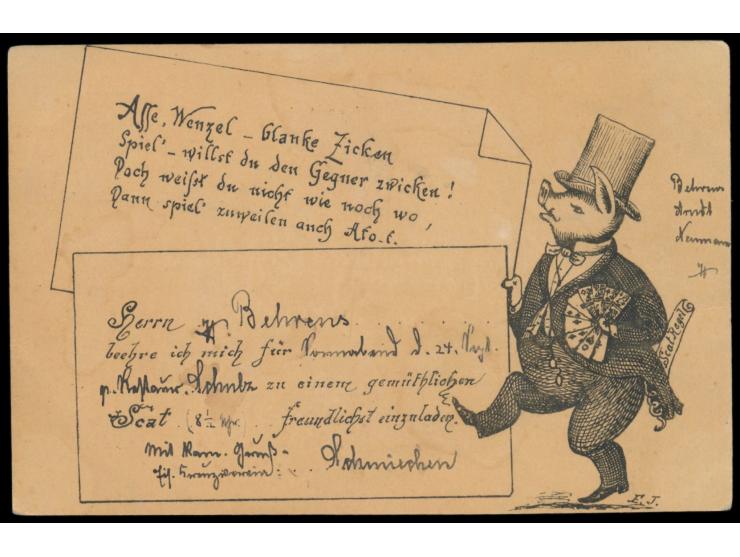 Asse, Wenzel – blanke Zicken
Spiel' – willst du den Gegner zwicken!
Doch weißt du nicht wie noch wo,
Dann spiel' zuweilen auch Ato-t.
Herrn H Behrens
beehre ich mich für Sonnabend d. 24. Sept.
p. Restaur. Schulz zu einem gemüthlichen
Scat (8 1/2 Uhr freundlichst einzuladen.
Mit Kam. Gruß –
Schmiechen
Behrens
Arndt
Neumann
H
Scat Regeln
E. J.